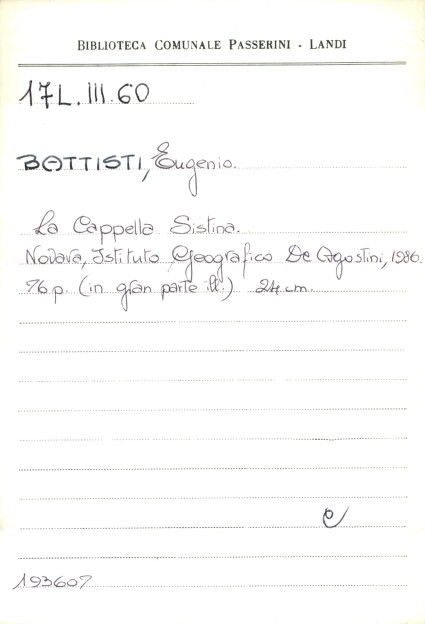 BIBLIOTECA COMUNALE PASSERINI - LANDI
17L.III.60
BATTISTI, Eugenio.
La Cappella Sistina.
Novara, Istituto Geografico De Agostini, 1986.
76 p. (in gran parte ill.) 24 cm.
e
193607